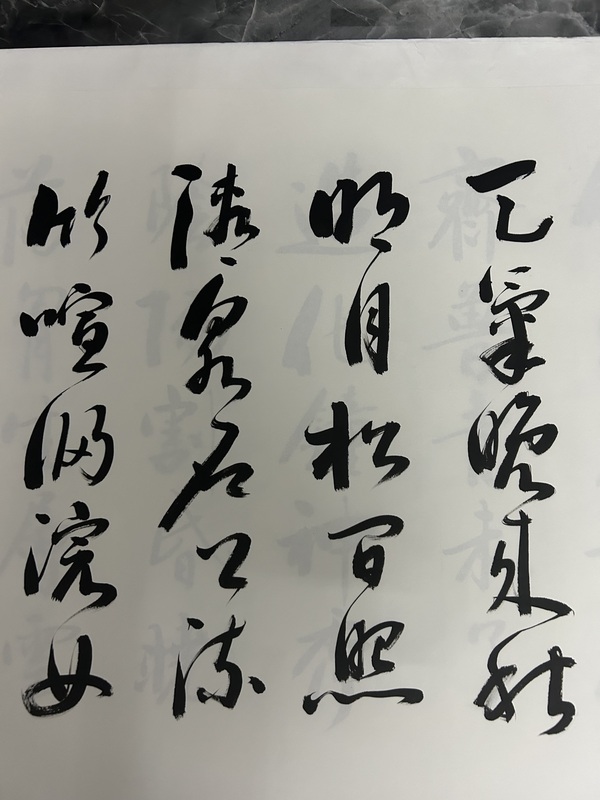 天氣晚來秋
明月松間照
清泉石上流
竹喧歸浣女